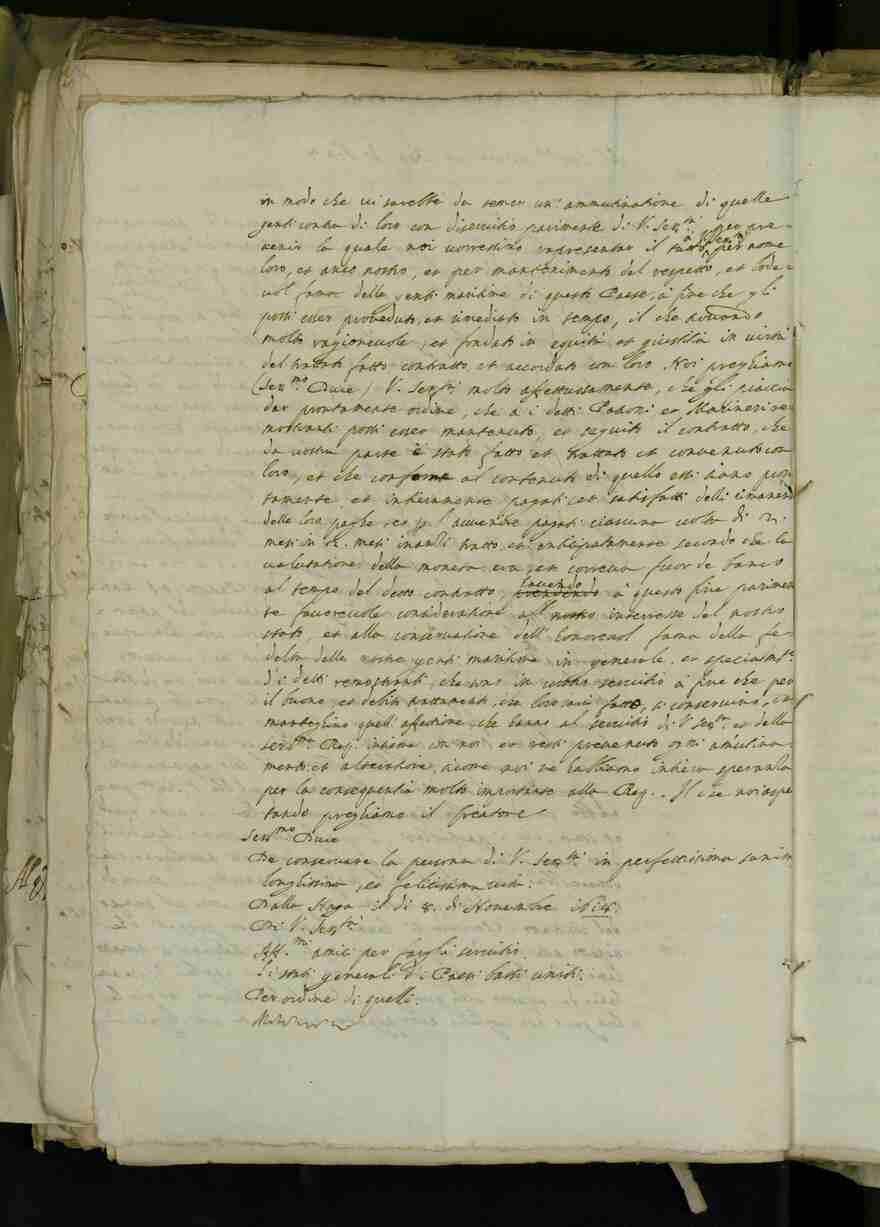 in modo che vi sarebbe da temer un' ammutinatione di quelle
genti contra di loro con diservitio parimente di V. Ser.tà per pre-
venir la quale noi vorressimo rapresentar il tutto per nome
loro, et anco nostro, et per mantenimento del respetto, et lode-
vol fama delle genti maritime di questo Paese, à fine che gli
possi esser proveduto, et rimediato in tempo, il che
molto ragionevole, et fondato in equità et giustitia in virtù
del trattato fatto contratto et accordato con loro Noi preghiamo
(Ser.mo Duce) V. Ser.tà molto affettuosamente, che gli piaccia
dar prontamente ordine, che a i detti Padroni et Marineri re-
mostranti possi esser mantenuto, et seguito il contratto, che
da vostra parte è stato fatto et trattato et convenuto con
loro, et che conforme al contenuto di quello essi siano pron
tamente, et intieramente pagati et satisfatti delli rimanenti
delle loro paghe et p. l'avvenire pagati ciascuna volta di 2.
mesi in 2. mesi inanzi tratto, et anticipatamente secondo che la
valutatione della moneta era, et correva fuor de banco
al tempo del detto contratto, havendo à questo fine parimen
te favorevole consideratione al nostro interesse del nostro
stato, et alla conservatione dell' honorevol fama della fe-
deltà delle nostre genti maritime in generale, et specialm.te
di i detti remostranti, che sono in vostro servitio à fine che per
il buono, et debito trattamento, che loro sarà fatto, si conservino, et
mantenghino quell' affettione che hanno al servitio di V. Ser.tà et della
Ser.ma Rep. insieme con noi et resti prevenuto ogni amutina-
mento et alteratione, sicome noi ne habbiamo intiera speranza
per la consequentia molto importante alla Rep. Il che noi aspe
tando preghiamo il Creatore
Ser.mo Duce
De conservare la persona di V. Ser.tà in perfettissima sanità
longhissima, et felicissima vita.
Dalla Haya il di 8. di Novembre 1618.
Di V. Ser.tà
Aff.mi amici per fargli servitio
Li stati generali di Paesi bassi uniti.
Per ordine di quelli.